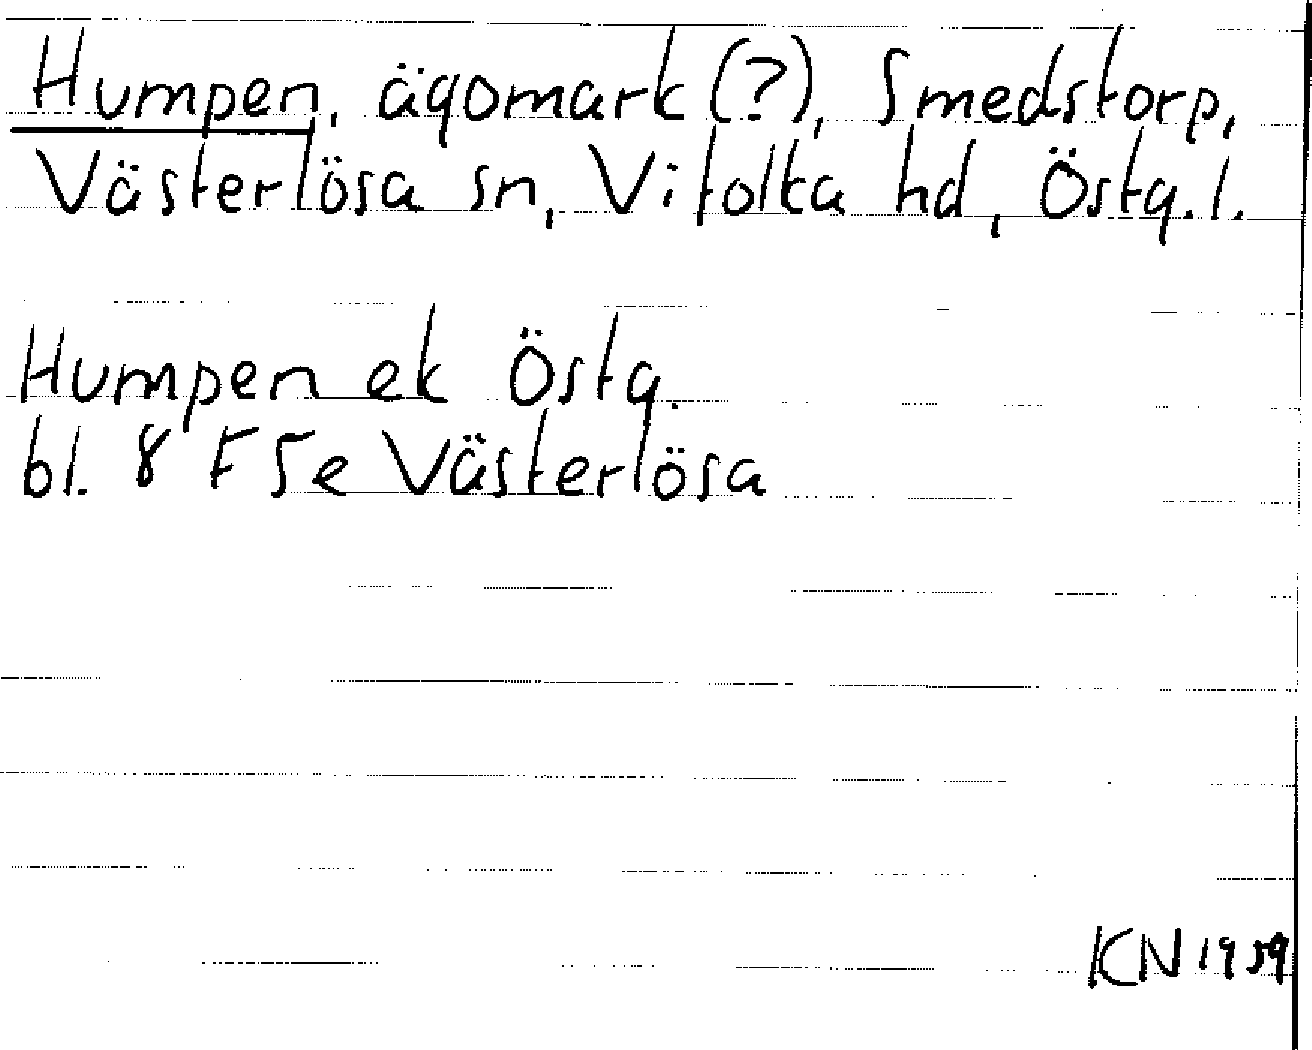 Humpen, ägomark (?), Smedstorp,
Västerlösa sn, Vifolka hd, Östg. l.
Humpen ek Östg.
bl. 8 F 5e Västerlösa
KN 1959